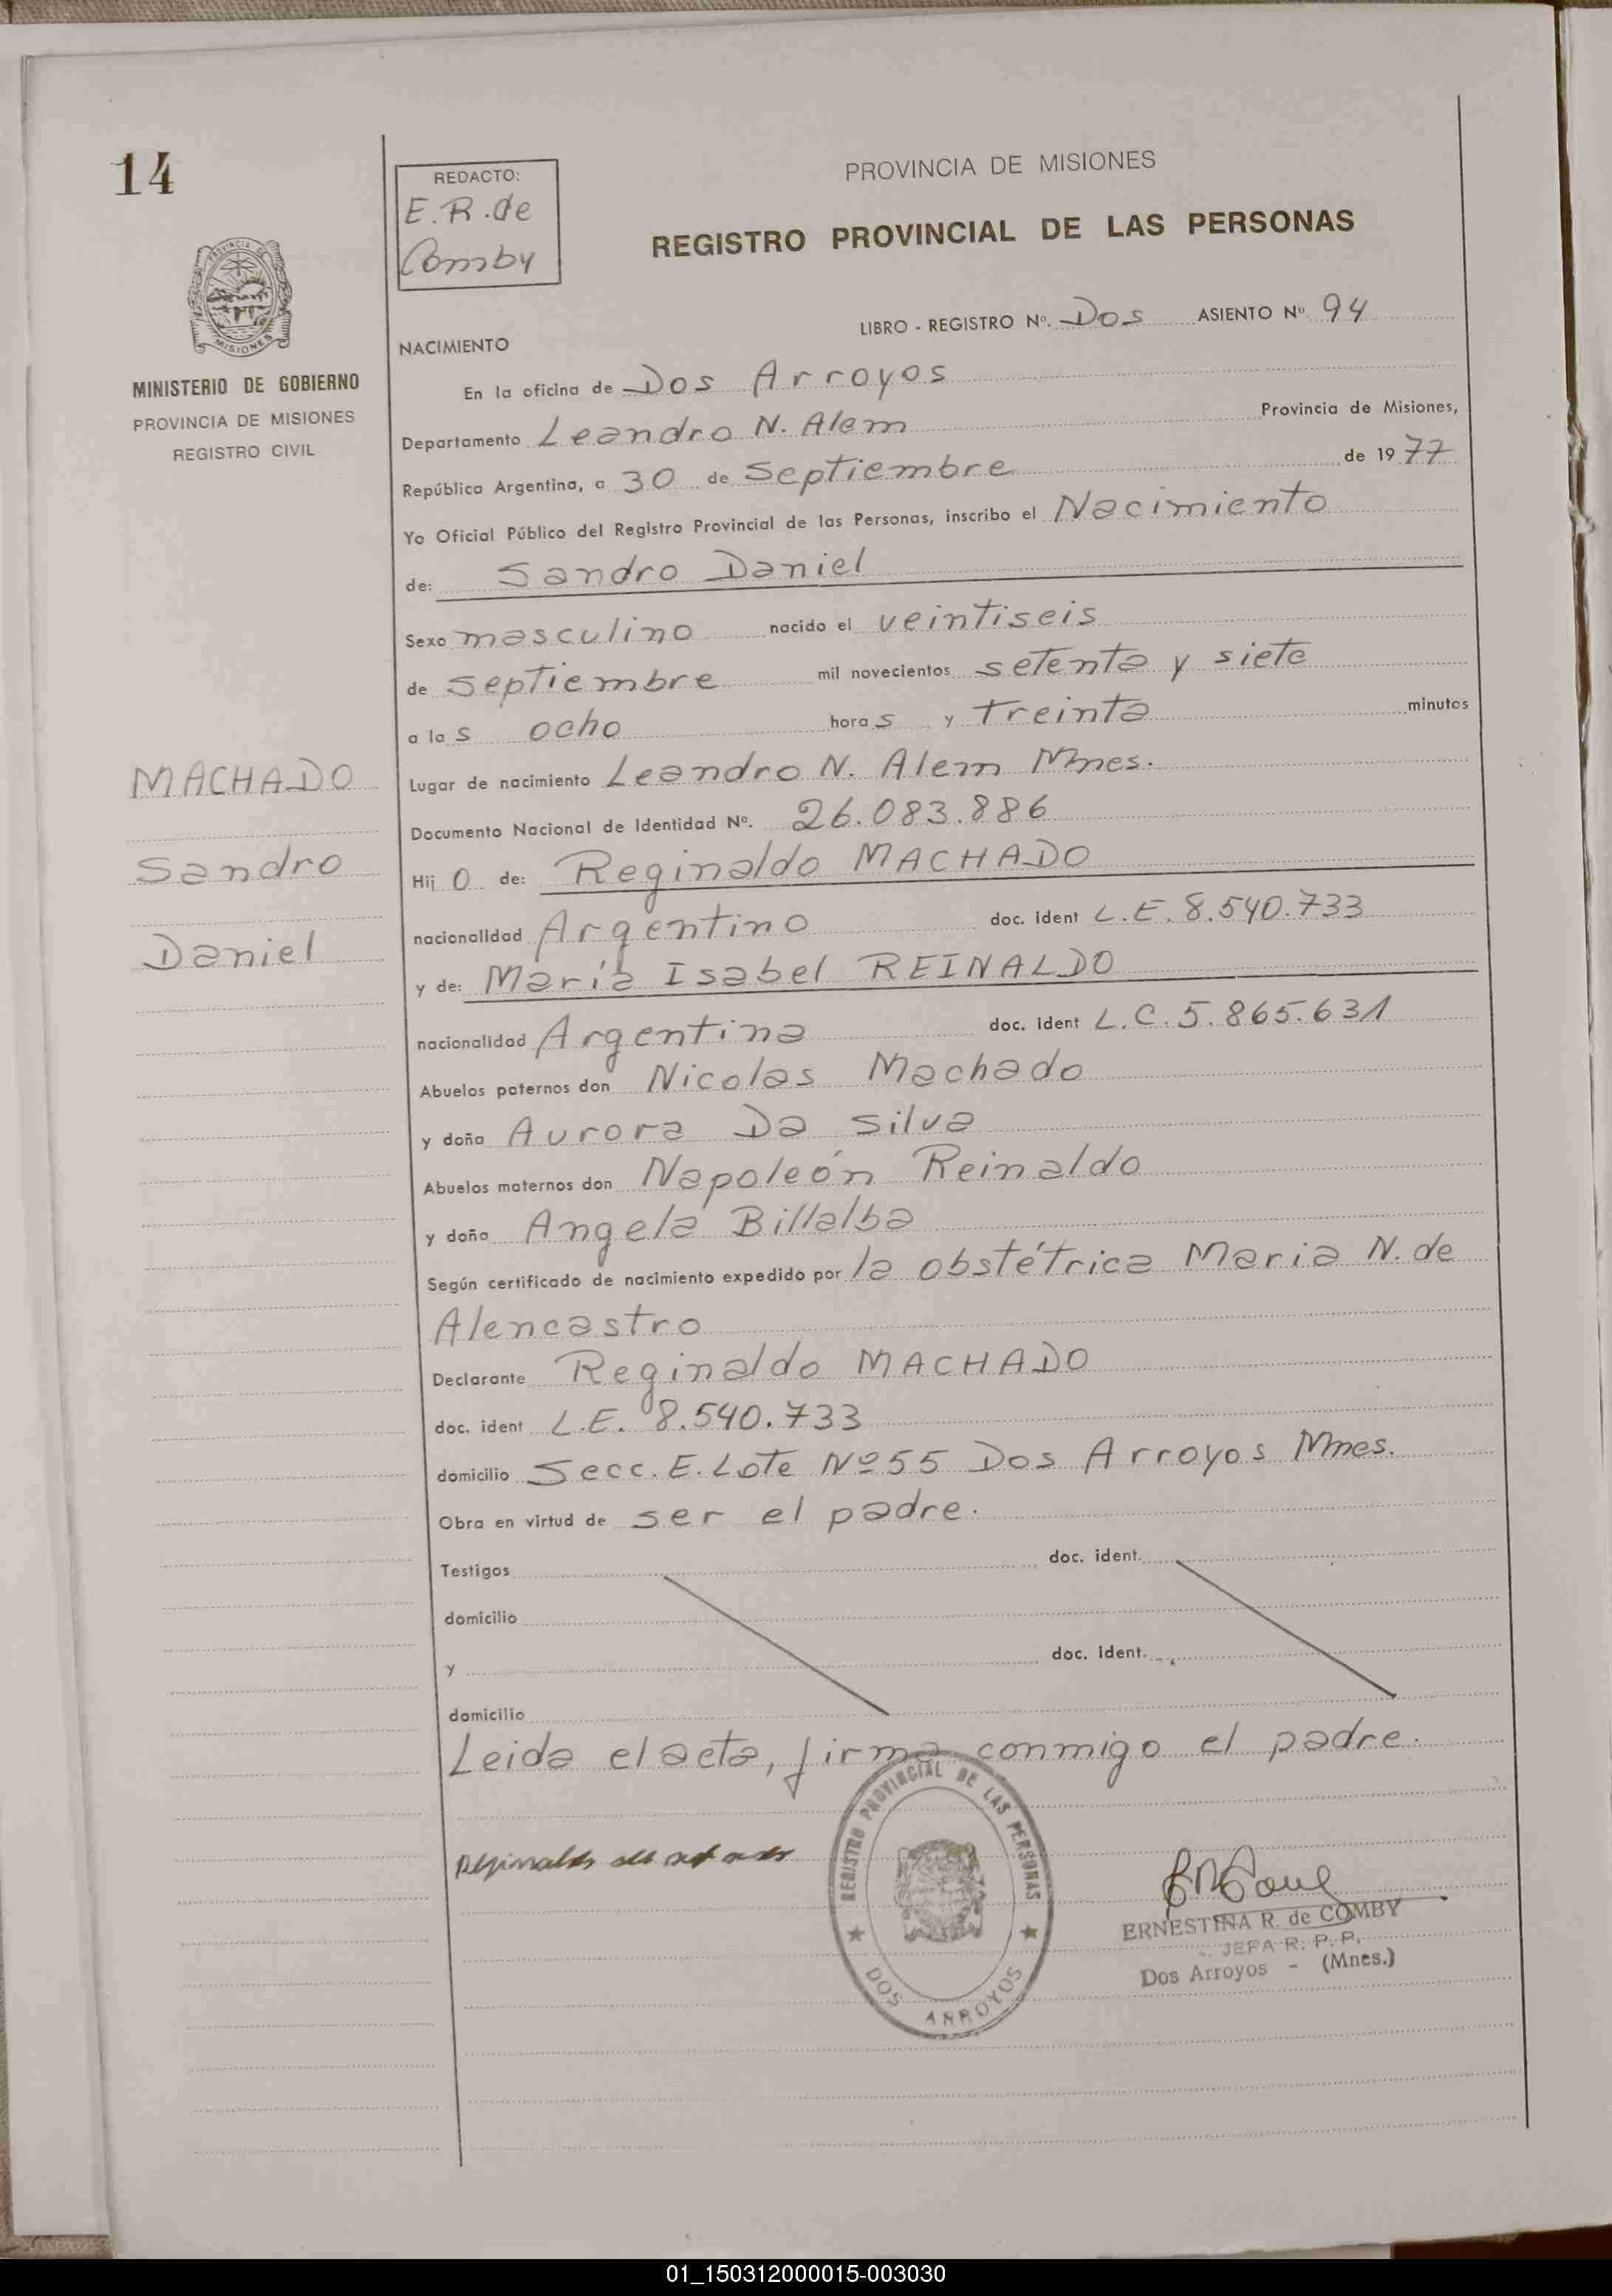 14
REDACTO:
E.R. de
Comby
PROVINCIA DE MISIONES
REGISTRO PROVINCIAL DE LAS PERSONAS
PROVINCIA DE
MISIONES
MINISTERIO DE GOBIERNO
PROVINCIA DE MISIONES
REGISTRO CIVIL
LIBRO - REGISTRO Nº. Dos ASIENTO Nº 94
NACIMIENTO
En la oficina de Dos Arroyos
Departamento Leandro N. Alem Provincia de Misiones,
República Argentina, a 30 de Septiembre de 1977
Yo Oficial Público del Registro Provincial de las Personas, inscribo el Nacimiento
de: Sandro Daniel
Sexo masculino nacido el veintiseis
de septiembre mil novecientos setenta y siete
a las ocho horas y treinta minutos
MACHADO
Sandro
Daniel
Lugar de nacimiento Leandro N. Alem Mnes.
Documento Nacional de Identidad Nº. 26.083.886
Hijo de: Reginaldo MACHADO
nacionalidad Argentino doc. ident L.E. 8.540.733
y de: María Isabel REINALDO
nacionalidad Argentina doc. ident L.C. 5.865.631
Abuelos paternos don Nicolas Machado
y doña Aurora Da Silva
Abuelos maternos don Napoleón Reinaldo
y doña Angela Billalba
Según certificado de nacimiento expedido por la obstétrica Maria N. de
Alencastro
Declarante Reginaldo MACHADO
doc. ident L.E. 8.540.733
domicilio Secc. E. Lote Nº 55 Dos Arroyos Mnes.
Obra en virtud de ser el padre.
Testigos doc. ident.
domicilio
y doc. ident.
domicilio
Leida el acta, firma conmigo el padre.
REGISTRO PROVINCIAL DE LAS PERSONAS
DOS ARROYOS
ERNESTINA R. de COMBY
JEFA R. P. P.
Dos Arroyos - (Mnes.)
01_150312000015-003030